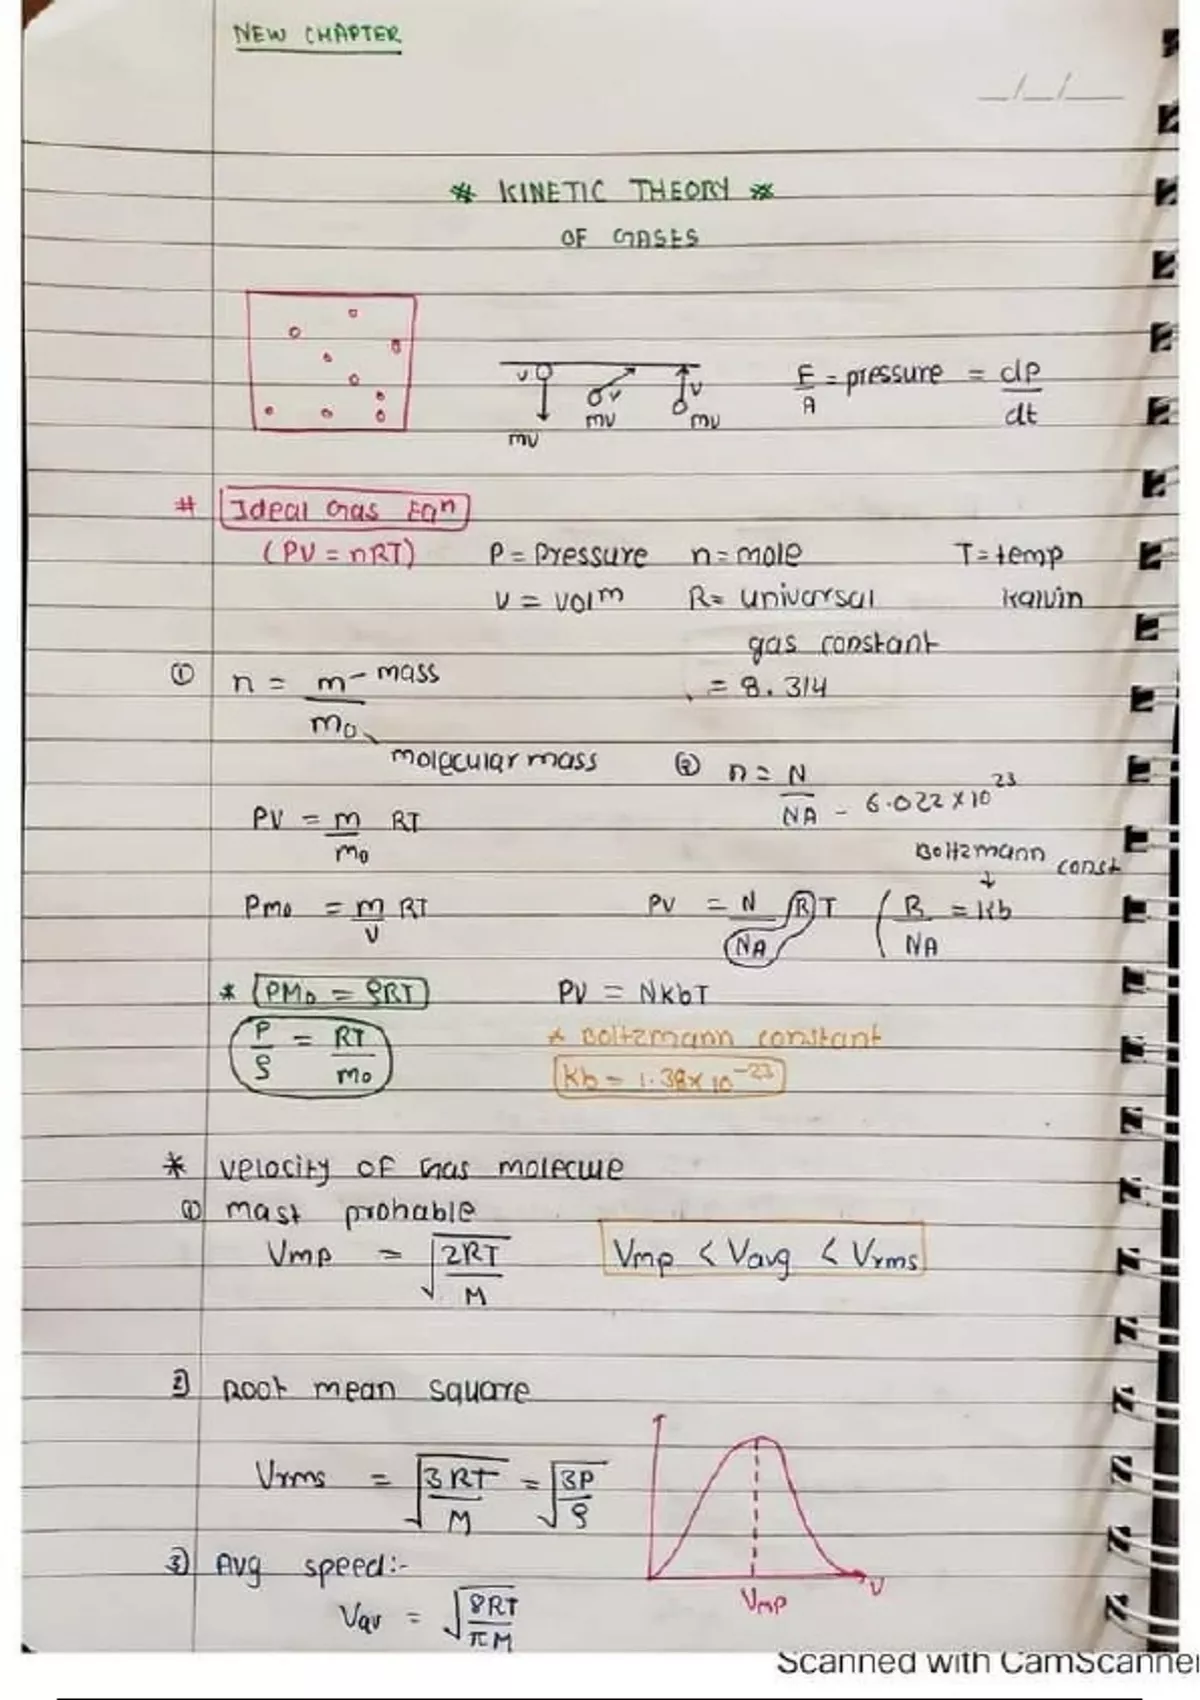 NEW CHAPTER
__/__/____
* KINETIC THEORY *
OF GASES
v v v
mv mv mv
F/A = pressure = dP/dt
# Ideal Gas Eqn
(PV = nRT) P = Pressure n = mole T = temp
V = volm R = univarsal kalvin
gas constant
① n = m/mo - mass = 8.314
molecular mass ② n = N/NA - 6.022 × 10^23
PV = m/mo RT
Boltzmann const
↓
Pmo = m/V RT PV = N/NA RT (R/NA = Kb
* PMo = ρRT PV = NKbT
P/ρ = RT/mo * Boltzmann constant
Kb = 1.38 × 10^-23
* velocity of Gas molecule
① mast probable
Vmp = √2RT/M Vmp < Vavg < Vrms
2) Root mean square
Vrms = √3RT/M = √3P/ρ
3) Avg speed:-
Vav = √8RT/πM
Vmp v
Scanned with CamScanner